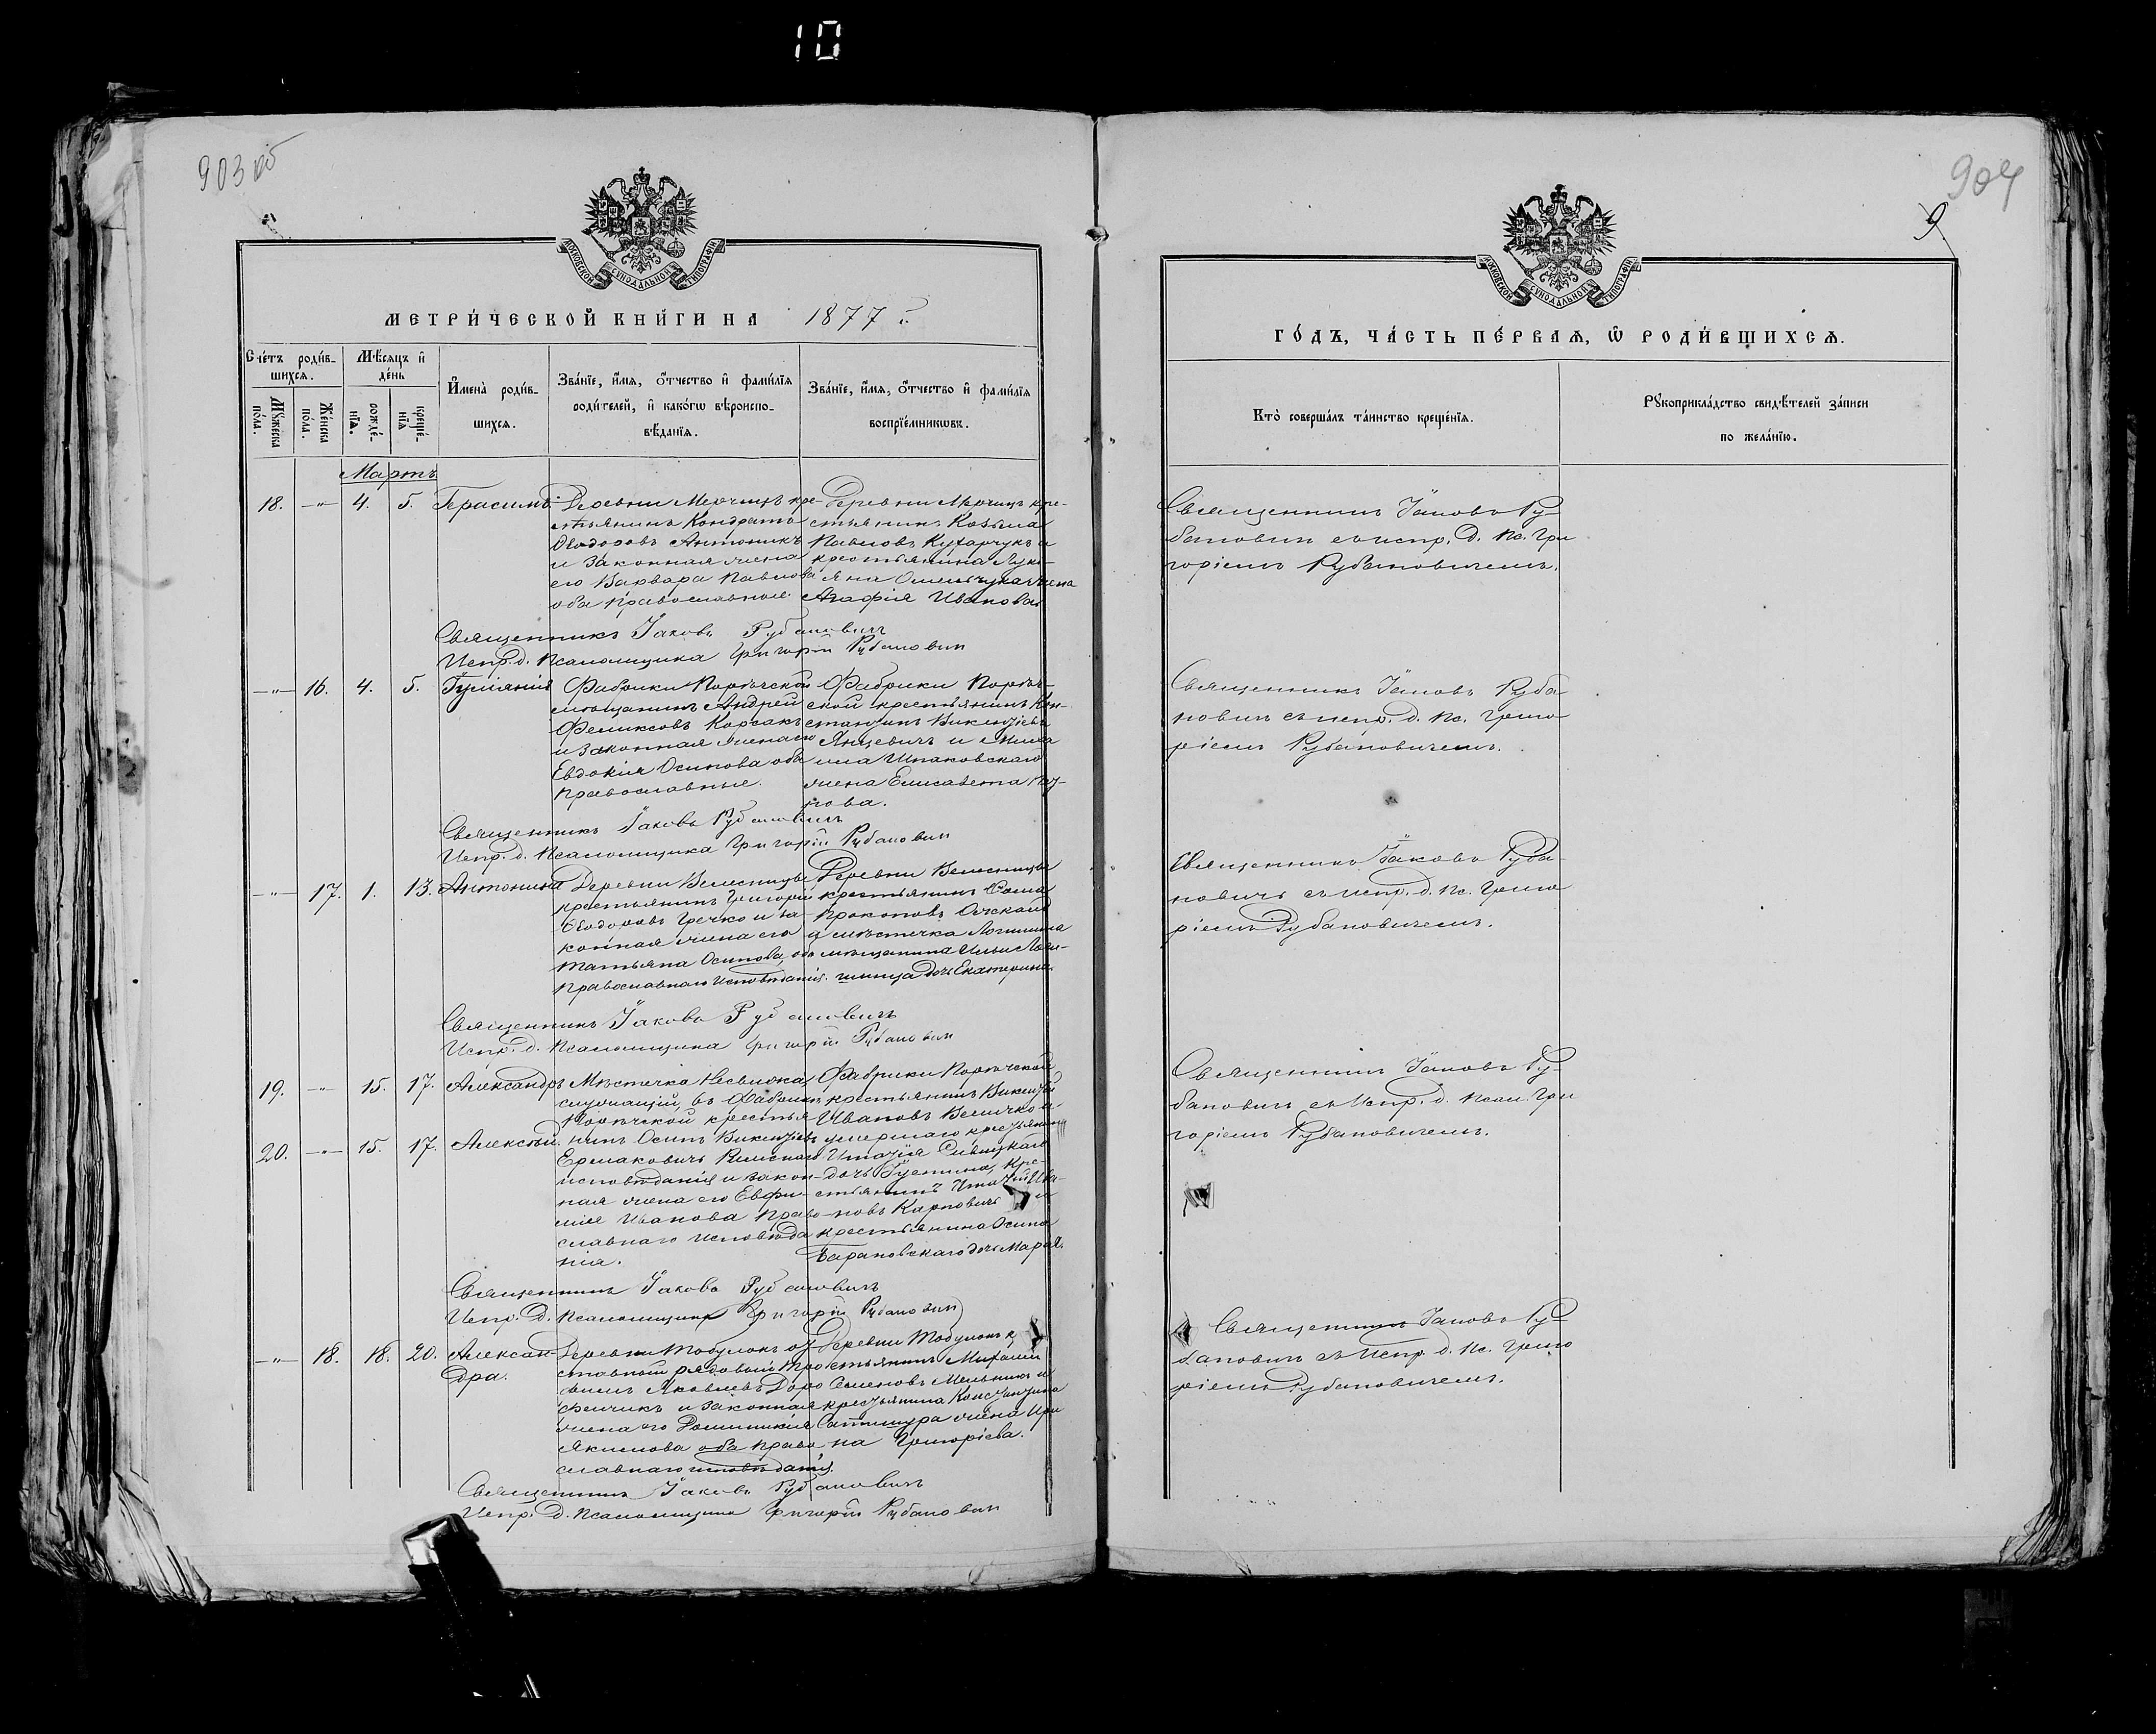 10
903 об
904
9.
МОСКОВСКОЙ СУНОДАЛЬНОЙ ТИПОГРАФІИ
МЕТРИ́ЧЕСКОЙ КНИ́ГИ НА 1877 г.
Сче́тъ роди́в-
шихся.
Мѣ́сяцъ и҆
де́нь
Мꙋ́жеска
по́ла.
Же́нска
по́ла.
рожде́-
нїѧ.
креще́-
нїѧ
И҆мена̀ роди́в-
шихся.
Зва́нїе, и҆́мѧ, ѻ҆́тчество и҆ фами́лїѧ
роди́телей, и҆ како́гѡ вѣроиспо-
вѣ́данїѧ.
Зва́нїе, и҆́мѧ, ѻ҆́тчество и҆ фами́лїѧ
воспрїе́мникѡвъ.
Мартъ
18. —"— 4. 5. Герасимъ
Деревни Мерчицъ кре-
стьянинъ Кондратъ
Ѳеодоровъ Антоникъ
и законная жена
его Варвара Павлова
оба православные
Деревни Мерчицъ кре-
стьянинъ Козьма
Павловъ Кухарчукъ и
крестьянина Луки-
яна Омельчука жена
Агафія Иванова
Священникъ Іаковъ Рубановичъ
Испр. д. Псаломщика Григорій Рубанович
—"— 16. 4. 5. Іуліанія
Фабрики Порѣчской
мѣщанинъ Андрей
Феликсовъ Корсакъ
и законная жена его
Евдокія Осипова оба
православные.
Фабрики Порѣч-
ской крестьянинъ Кон-
стантинъ Викентіевъ
Янцевичъ и Миха
ила Шпаковскаго
жена Елисавета
нова.
Священникъ Іаковъ Рубановичъ
Испр. д. Псаломщика Григорій Рубанович
—"— 17. 1. 13. Антонина
Деревни Велесницы
крестьянинъ Григорій
Ѳеодоровъ Гречко и за-
конная жена его
Татьяна Осипова, оба
православнаго исповѣданія.
Деревни Велесницы
крестьянинъ Ѳома
Прокоповъ
и мѣстечка Логишина
мѣщанина Ильи
дочь Екатерина.
Священникъ Іаковъ Рубановичъ
Испр. д. Псаломщика Григорій Рубанович
19. —"— 15. 17. Александръ
20. —"— 15. 17. Алексѣй.
Мѣстечка Несвижа,
служащій въ Фабрикѣ
Порѣчской крестья
нинъ Осипъ Викентіевъ
Ермаковичъ Римскаго
исповѣданія и закон-
ная жена его Евфи-
мія Иванова право-
славнаго исповѣда
нія.
Фабрики Порѣчской
крестьянинъ Викентій
Ивановъ Величко и
умершаго крестьянина
Игнатія Сивицкаго
дочь Іустина, кре-
стьянинъ Игнатій Ива-
новъ Карповичъ и
крестьянина Осипа
Барановскаго дочь Марія.
Священникъ Іаковъ Рубановичъ
Испр. Д. Псаломщика Григорій Рубанович
—"— 18. 18. 20. Алексан-
дра.
Деревни Тобулокъ от
ставный рядовый Тро
фимъ Яковлевъ Доро
фейчикъ и законная
жена его Доминикія
Якимова оба право
славнаго исповѣданія.
Деревни Тобулокъ к
стьянинъ Михаилъ
Семеновъ Мельникъ и
крестьянина Константина
Сатишура жена Ири
на Григорієва.
Священникъ Іаковъ Рубановичъ
Испр. Д. Псаломщика Григорій Рубанович
МОСКОВСКОЙ СУНОДАЛЬНОЙ ТИПОГРАФІИ
ГО́ДЪ, ЧА́СТЬ ПЕ́РВАѦ, Ѡ҆ РОДИ́ВШИХСѦ.
Кто̀ соверша́лъ та́инство креще́нїѧ.
Рꙋкоприкла́дство свидѣ́телей за́писи
по жела́нїю.
Священникъ Іаковъ Ру-
бановичъ съ испр. д. Пс. Гри
горіемъ Рубановичемъ.
Священникъ Іаковъ Руба-
новичъ съ испр. д. Пс. Григо-
ріемъ Рубановичемъ.
Священникъ Іаковъ Руба-
новичъ съ испр. д. Пс. Григо
ріемъ Рубановичемъ.
Священникъ Іаковъ Ру-
бановичъ съ Испр. д. Псал. Гри
горіемъ Рубановичемъ.
Священникъ Іаковъ Ру
бановичъ съ Испр. д. Пс. Григо
ріемъ Рубановичемъ.